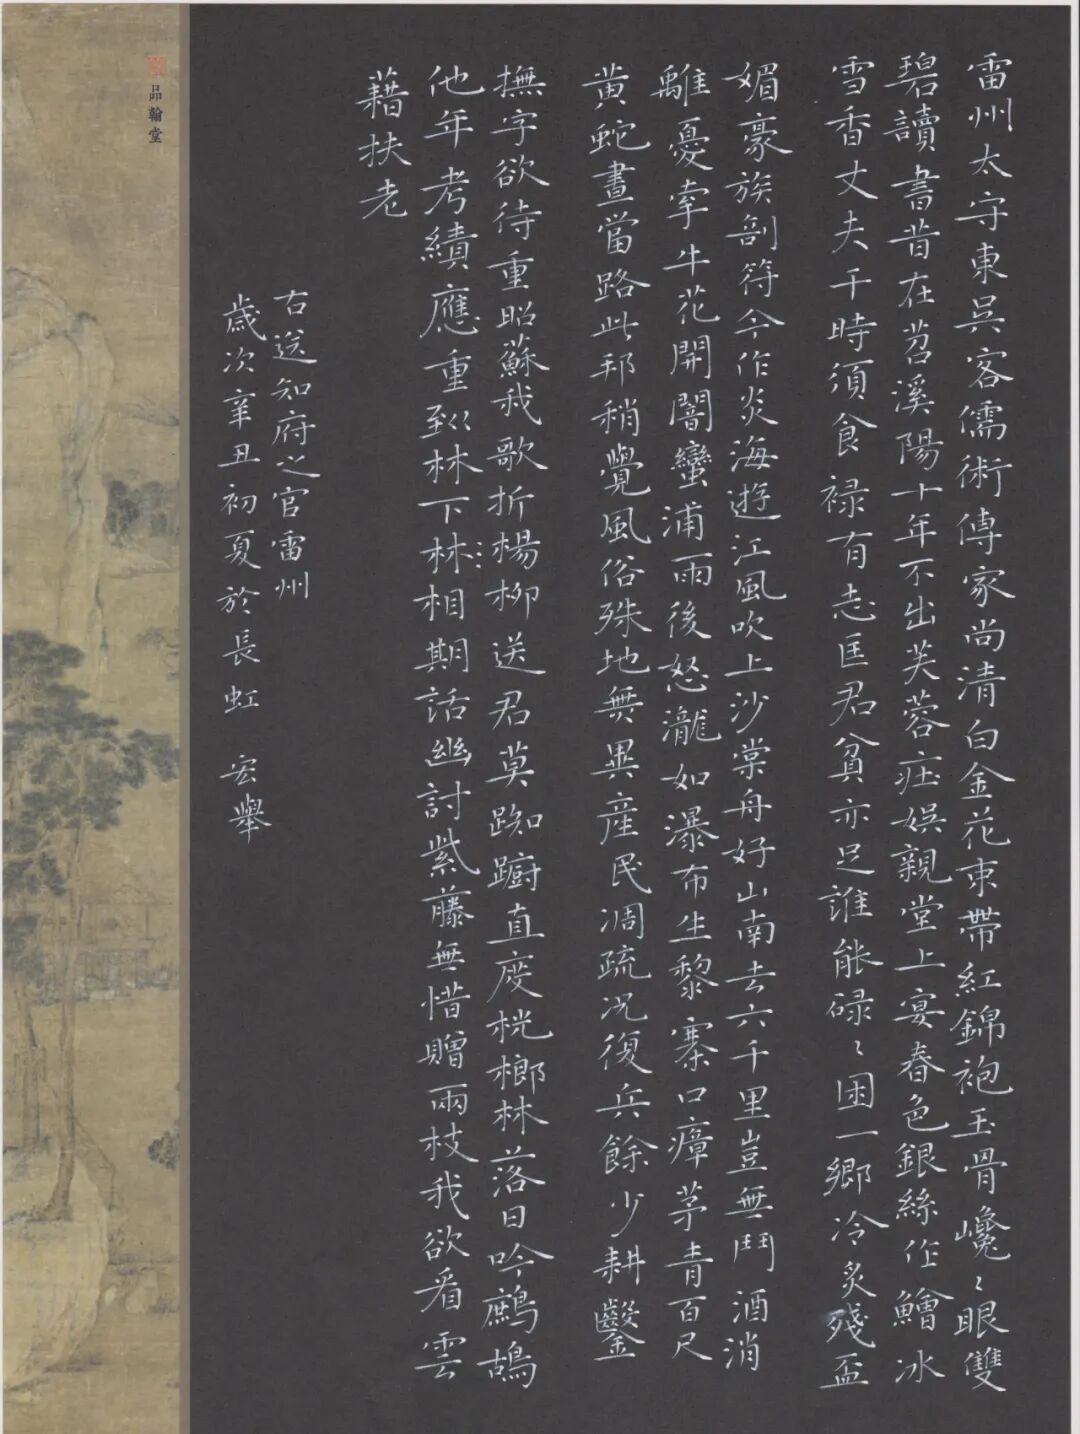 雷州太守東吳客儒術傳家尚清白金花束帶紅錦袍玉骨巉〻眼雙
碧讀書昔在苕溪陽十年不出芙蓉莊娛親堂上宴春色銀絲作鱠冰
雪香丈夫干時須食祿有志匡君貧亦足誰能碌〻困一鄉冷炙殘盃
媚豪族剖符今作炎海遊江風吹上沙棠舟好山南去六千里豈無鬥酒消
離憂牽牛花開闇蠻浦雨後怒瀧如瀑布生黎寨口瘴茅青百尺
黃蛇晝當路此邦稍覺風俗殊地無異產民凋疏況復兵餘少耕鑿
撫字欲待重昭蘇我歌折楊柳送君莫踟躕直度桄榔林落日吟鷓鴣
他年考績應重到林下林相期話幽討紫藤無惜贈兩枝我欲看雲
藉扶老
右送知府之官雷州
歲次辛丑初夏於長虹 宏舉
品翰堂